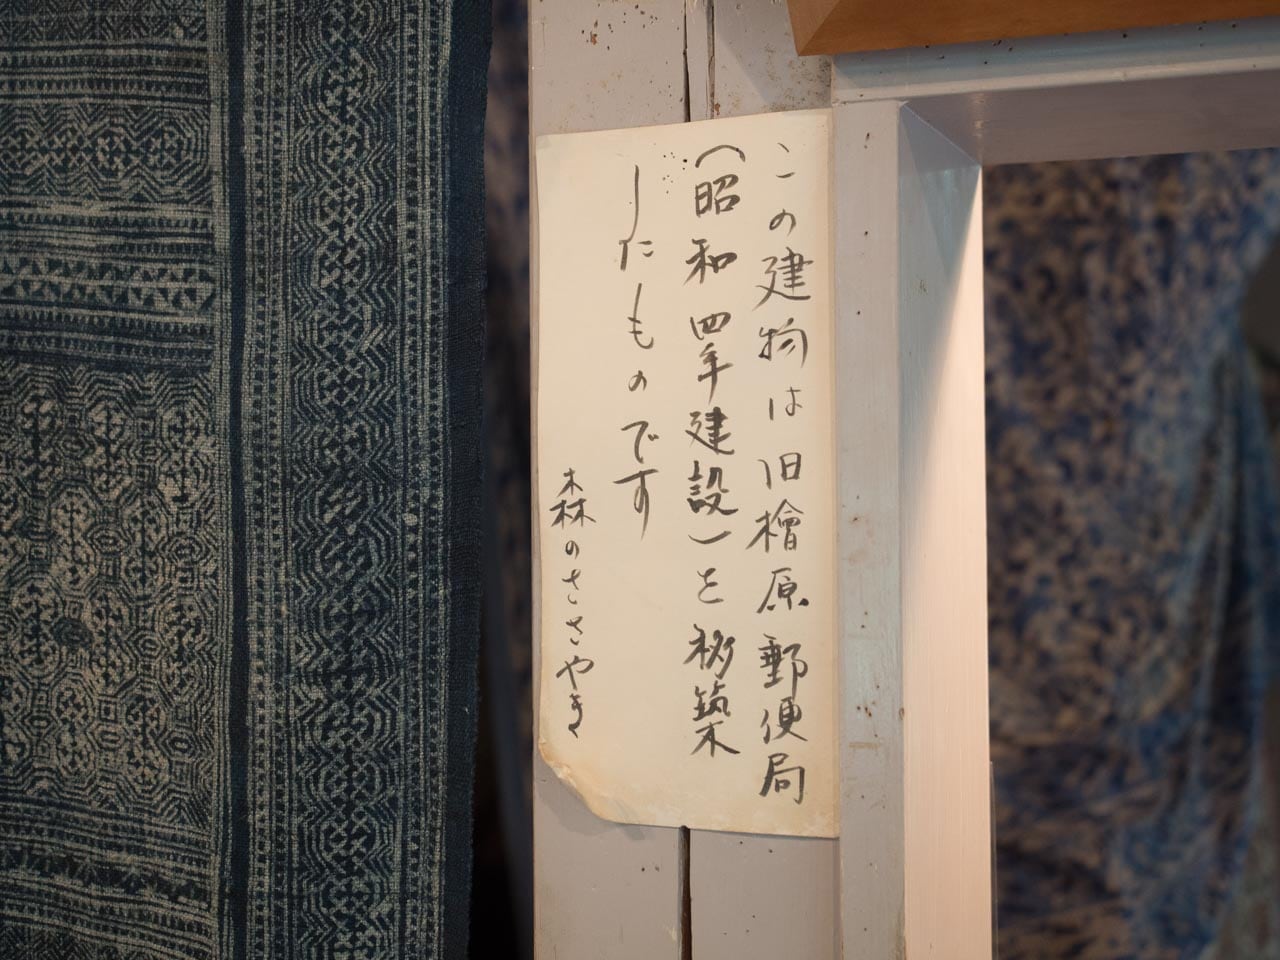 この建物は旧檜原郵便局
(昭和四年建設)を移築
したものです
森のささやき